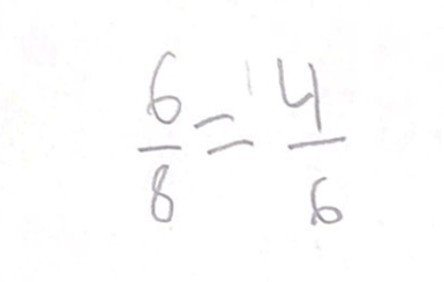 6/8 = 4/6